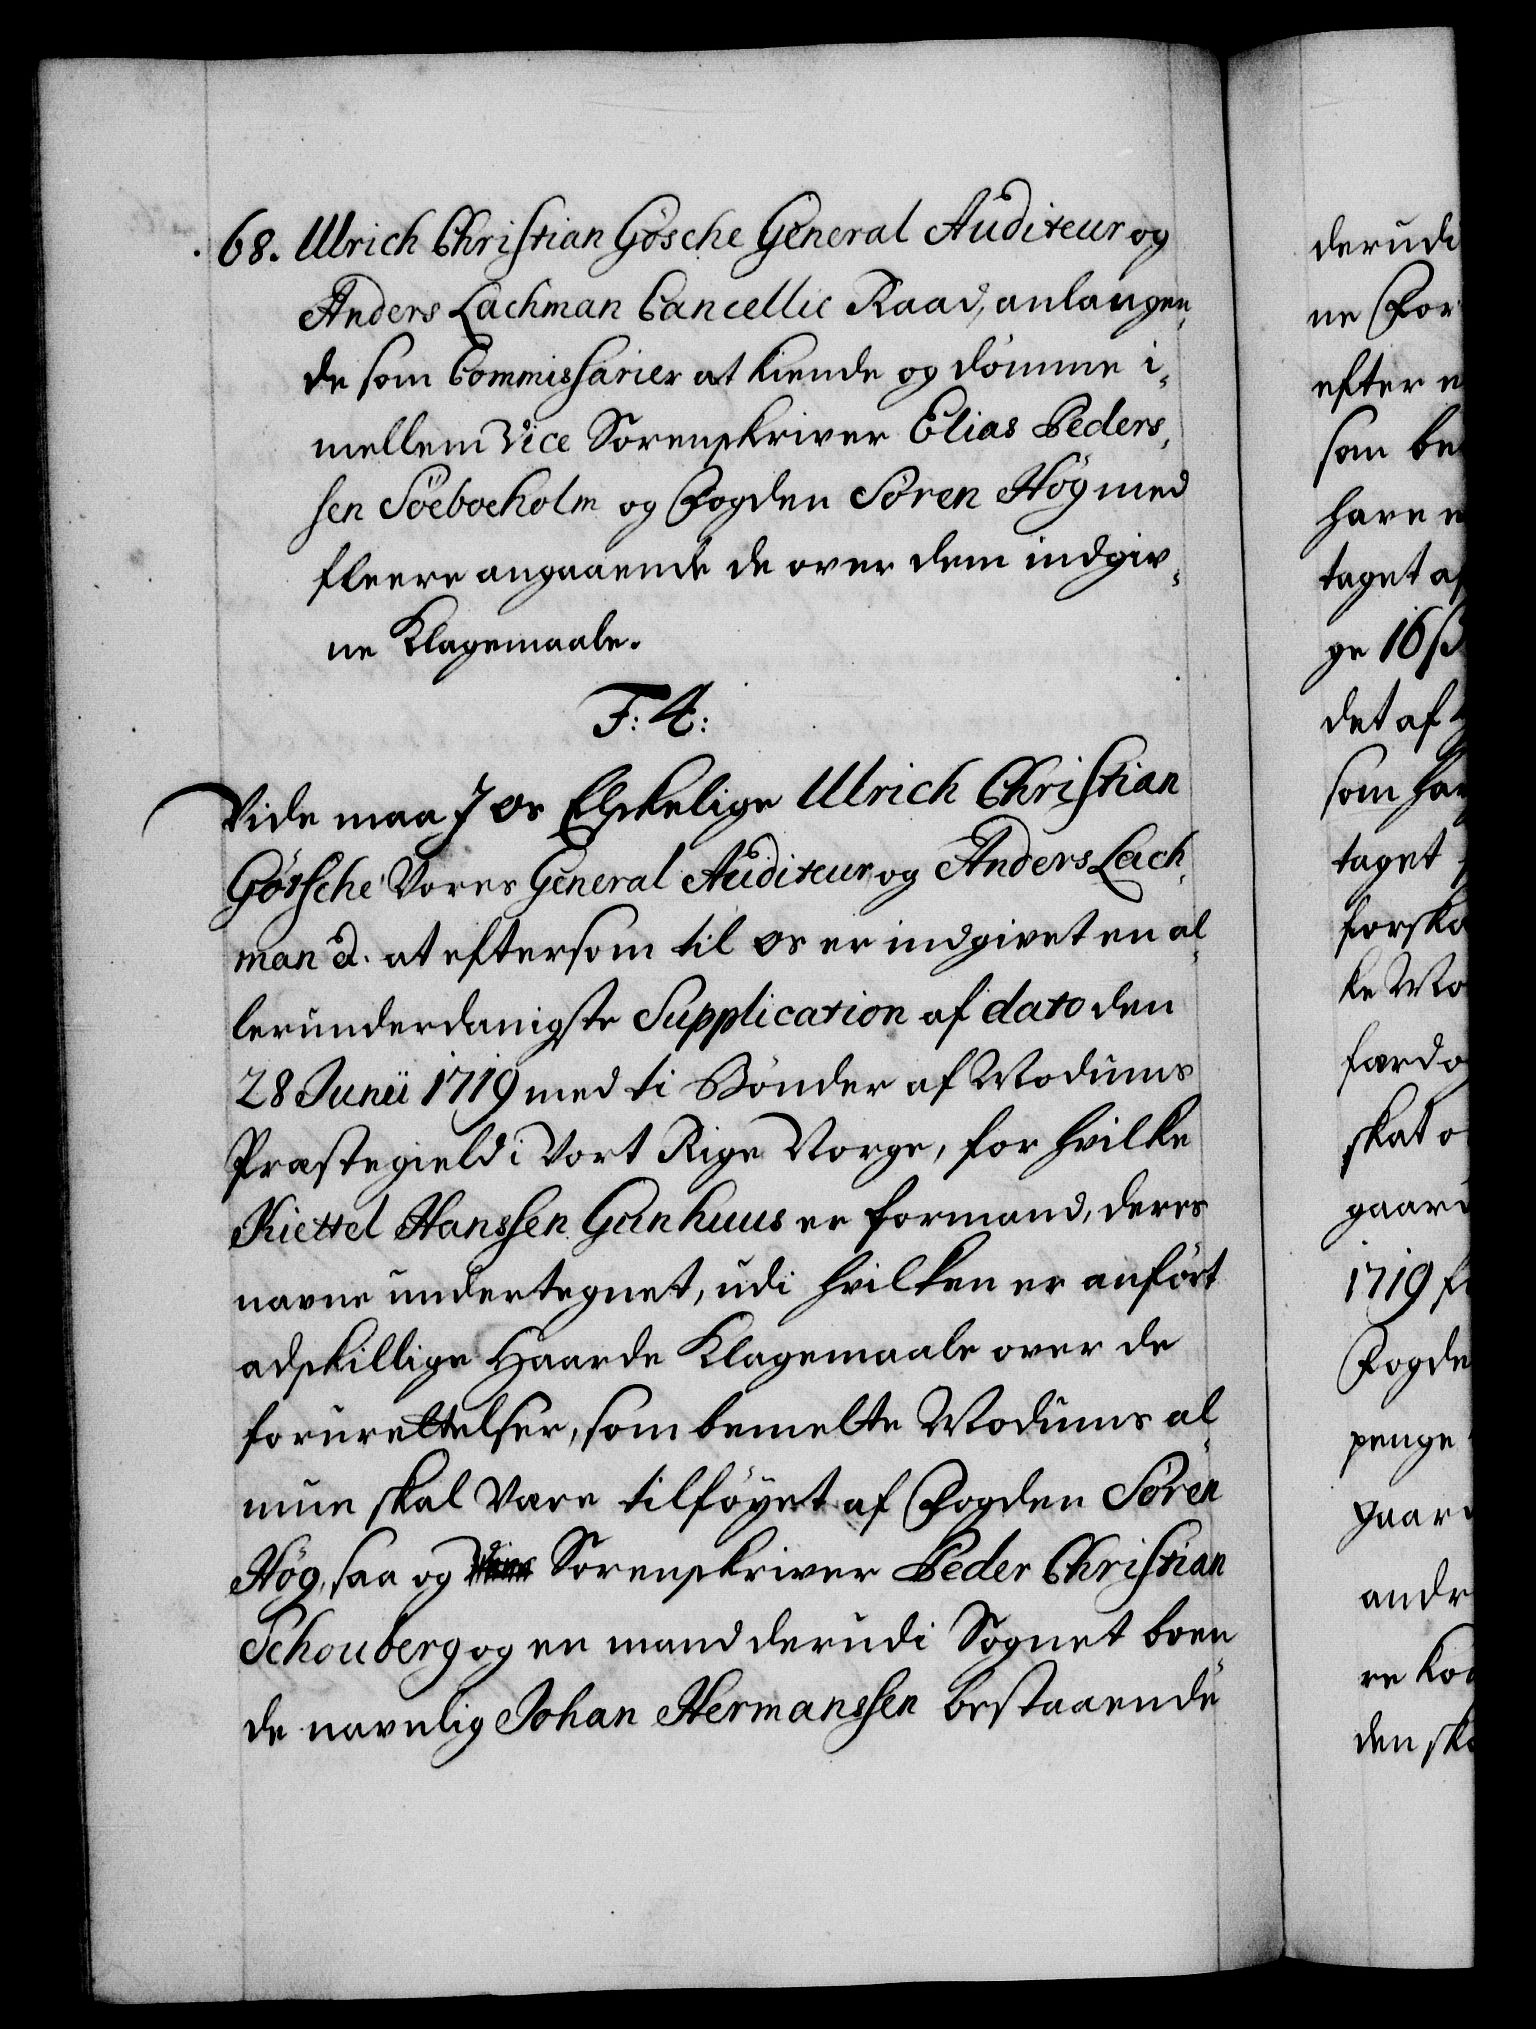 68. Ulrich Christian Gösche General Auditeur og
Anders Lachman Cancellie Raad, anlangen,
de som Commissarier at kiende og dömme i,
mellem Vice Sorenskriver Elias Peders,
sen Söeboeholm og Fogden Sören Hög med
fleere angaaende de over dem indgiv,
ne Klagemaale.
F: 4:
Vide maa J os Elskelige Ulrich Christian
Gössche Vores General Auditeur og Anders Lach,
man &. at eftersom til os er indgivet en al,
lerunderdanigste Supplication af dato den
28 Junii 1719 med ti Bönder af Modums
Præstegield i Vort Rige Norge, for hvilke
Kiettel Hanssen Gunhuus er formand, deres
navne undertegnet, udi hvilken er anfört
adskillige Haarde Klagemaale over de
forurettelser, som bemelte Modums al,
mue skal være tilföyet af Fogden Sören
Hög, saa og Sorenskriver Peder Christian
Schouberg og en mand derudi Sognet boen,
de navnlig Johan Hermanssen bestaaende
derudi
ne For
efter
som be
have
taget af
ge 16 ß
det af
som har
taget
forska
ke Mo
færd og
skat o
gaard
1719
Fogde
penge
gaar
andr
re
den sk